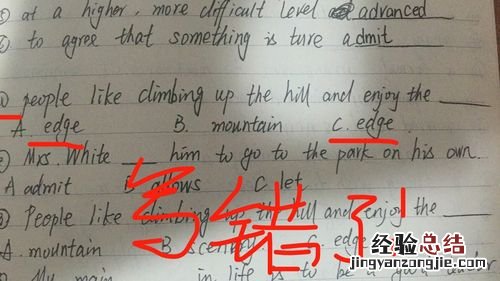 ⑤ at a higher, more difficult level advanced
⑥ to agree that something is ture admit
① people like climbing up the hill and enjoy the ____
A. edge B. mountain C. edge
② Mrs. White ____ him to go to the park on his own.
A admit B allows C let
③ People like climbing up the hill and enjoy the ____
A. mountain B scenery C. edge
My main in life is to be a good
写错了!
经验总结
jingyanzongjie.com